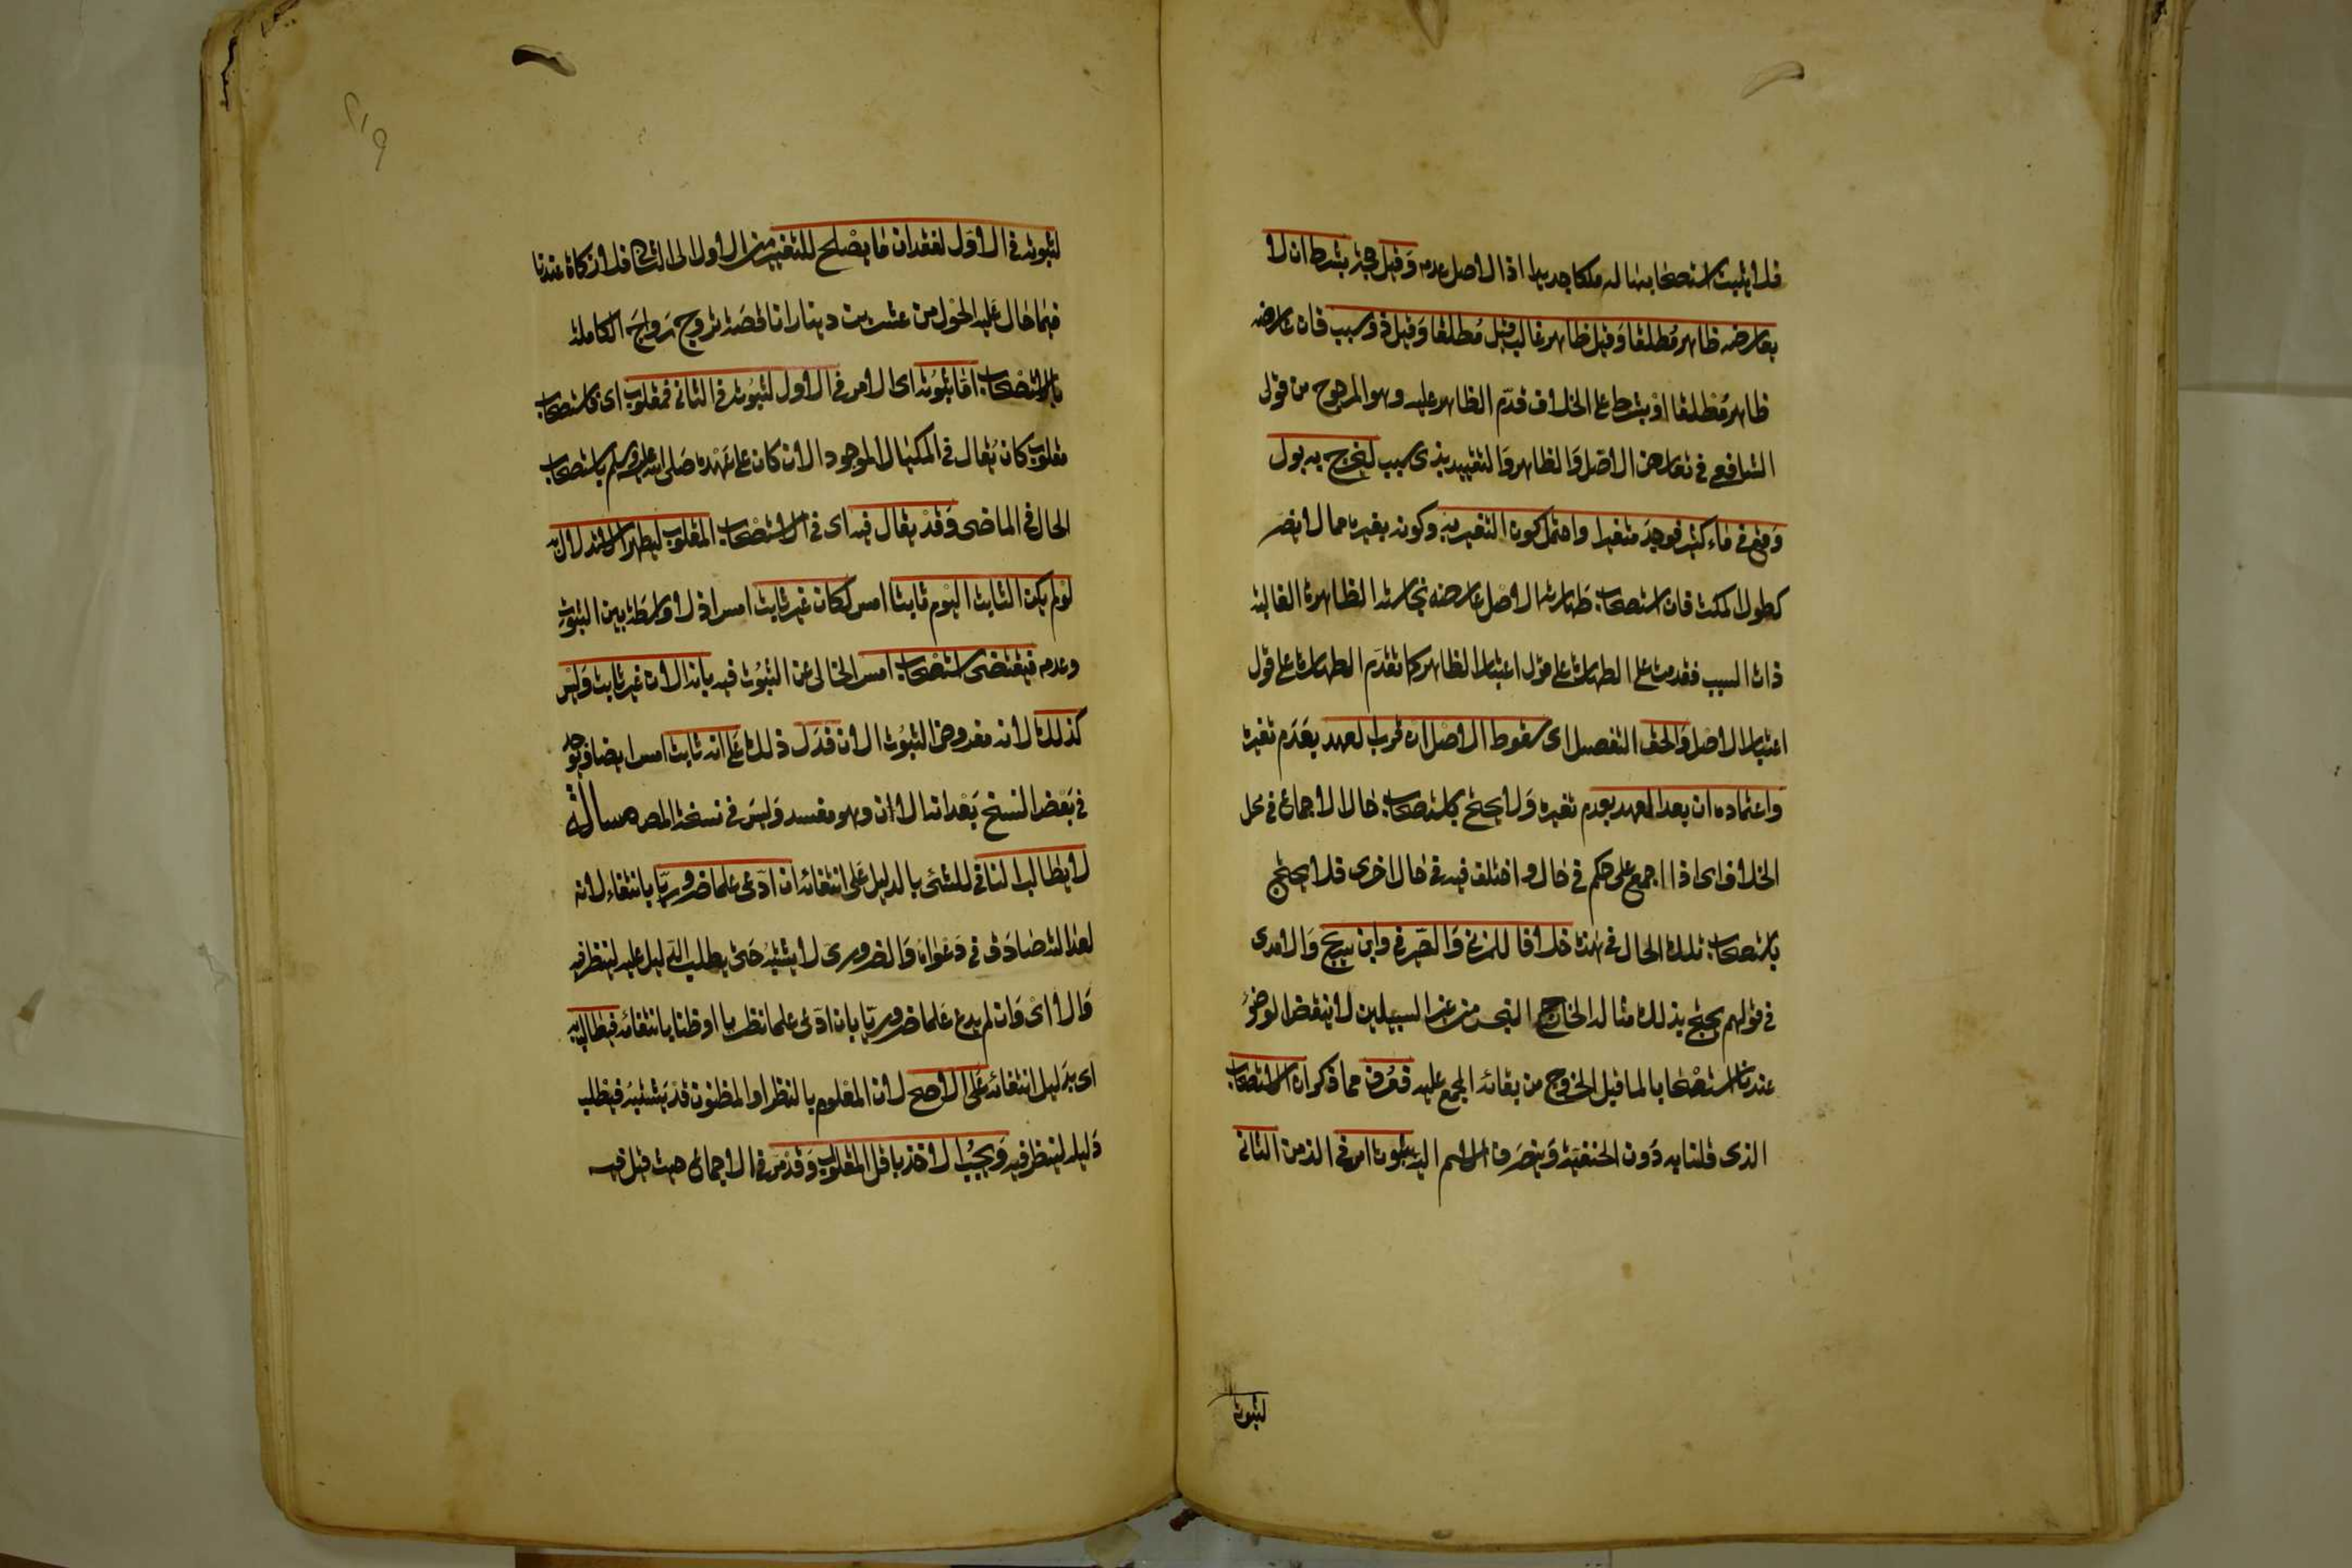 فلا يثبت استصحابها له ملكا جديدا اذ الاصل عدمه وقيل حجة بشرط ان لا
يعارضه ظاهر مطلقا وقيل ظاهر غالب قيل مطلقا وقيل ذو سبب فان عارضه
ظاهر مطلقا او بشرط على الخلاف قدم الظاهر عليه وهو المرجوح من قولى
الشافعي في تعارض الاصل والظاهر والتقييد بذى سبب ليخرج به بول
وقع في ماء كثير فوجد متغيرا واحتمل كون التغير به وكونه بغيره مما لا يضر
كطول المكث فان استصحاب طهارته الاصل عارضه نجاسته الظاهرة الغالبة
ذات السبب فقدمت على الطهارة على قول اعتبار الظاهر كما تقدم الطهارة على قول
اعتبار الاصل والحق التفصيل اى سقوط الاصل ان قرب العهد بعدم تغيره
واعتماده ان بعد العهد بعدم تغيره ولا يحتج باستصحاب حال الاجماع في محل
الخلاف اى اذا اجمع على حكم في حال واختلف فيه في حال اخرى فلا يحتج
باستصحاب تلك الحال في هذه خلافا للمزني والصيرفي وابن سريج والامدى
في قولهم يحتج بذلك مثاله الخارج النجس من غير السبيلين لا ينقض الوضوء
عندنا استصحابا لما قبل الخروج من بقائه المجمع عليه فعرف مما ذكر ان الاستصحاب
الذى قلنا به دون الحنفية وينصرف الاسم اليه ثبوت امر في الزمن الثانى
لثبوته
٢١٩
لثبوته في الاول لفقدان ما يصلح للتغيير من الاول الى الثانى فلا زكاة عندنا
فيما حال عليه الحول من عشرين دينارا ناقصة تروج رواج الكاملة
بالاستصحاب اما ثبوته اى الامر في الاول لثبوته في الثاني فمقلوب اى فاستصحاب
مقلوب كان يقال في المكيال الموجود الان كان على عهده صلى الله عليه وسلم باستصحاب
الحال في الماضى وقد يقال فيه اى في الاستصحاب المقلوب ليظهر الاستدلال به
لو لم يكن الثابت اليوم ثابتا امس لكان غير ثابت امس اذ لا واسطة بين الثبوت
وعدمه فيقتضى استصحاب امس الخالى عن الثبوت فيه بانه الان غير ثابت وليس
كذلك لانه مفروض الثبوت الان فدل ذلك على انه ثابت امس ايضا ويوجد
في بعض النسخ بعد انه الان وهو مفسد وليس في نسخة المص مسألة
لا يطالب النافي للشئ بالدليل على انتفائه ان ادعى علما ضروريا بانتفاءه لانه
لعدالته صادق في دعواه والضرورى لا يشتبه حتى يطلب الدليل عليه لينظر فيه
والا اى وان لم يدع علما ضروريا بان ادعى علما نظريا او ظنا بانتفائه فيطالب به
اى بدليل انتفائه على الاصح لان المعلوم بالنظر او المظنون قد يشتبه فيطلب
دليله لينظر فيه ويجب الاخذ باقل المقول وقد مر في الاجماع حيث قيل فيه